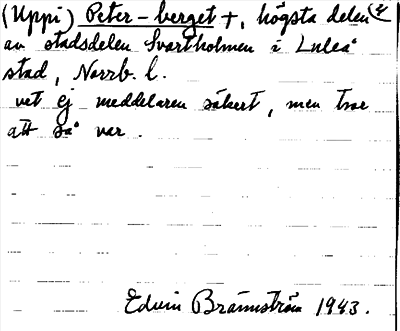 (Uppi) Peter-berget +, högsta delen
av stadsdelen Svartholmen i Luleå
stad, Norrb. l.
vet ej meddelaren säkert, men tror
att så var.
Edvin Brännström 1943.